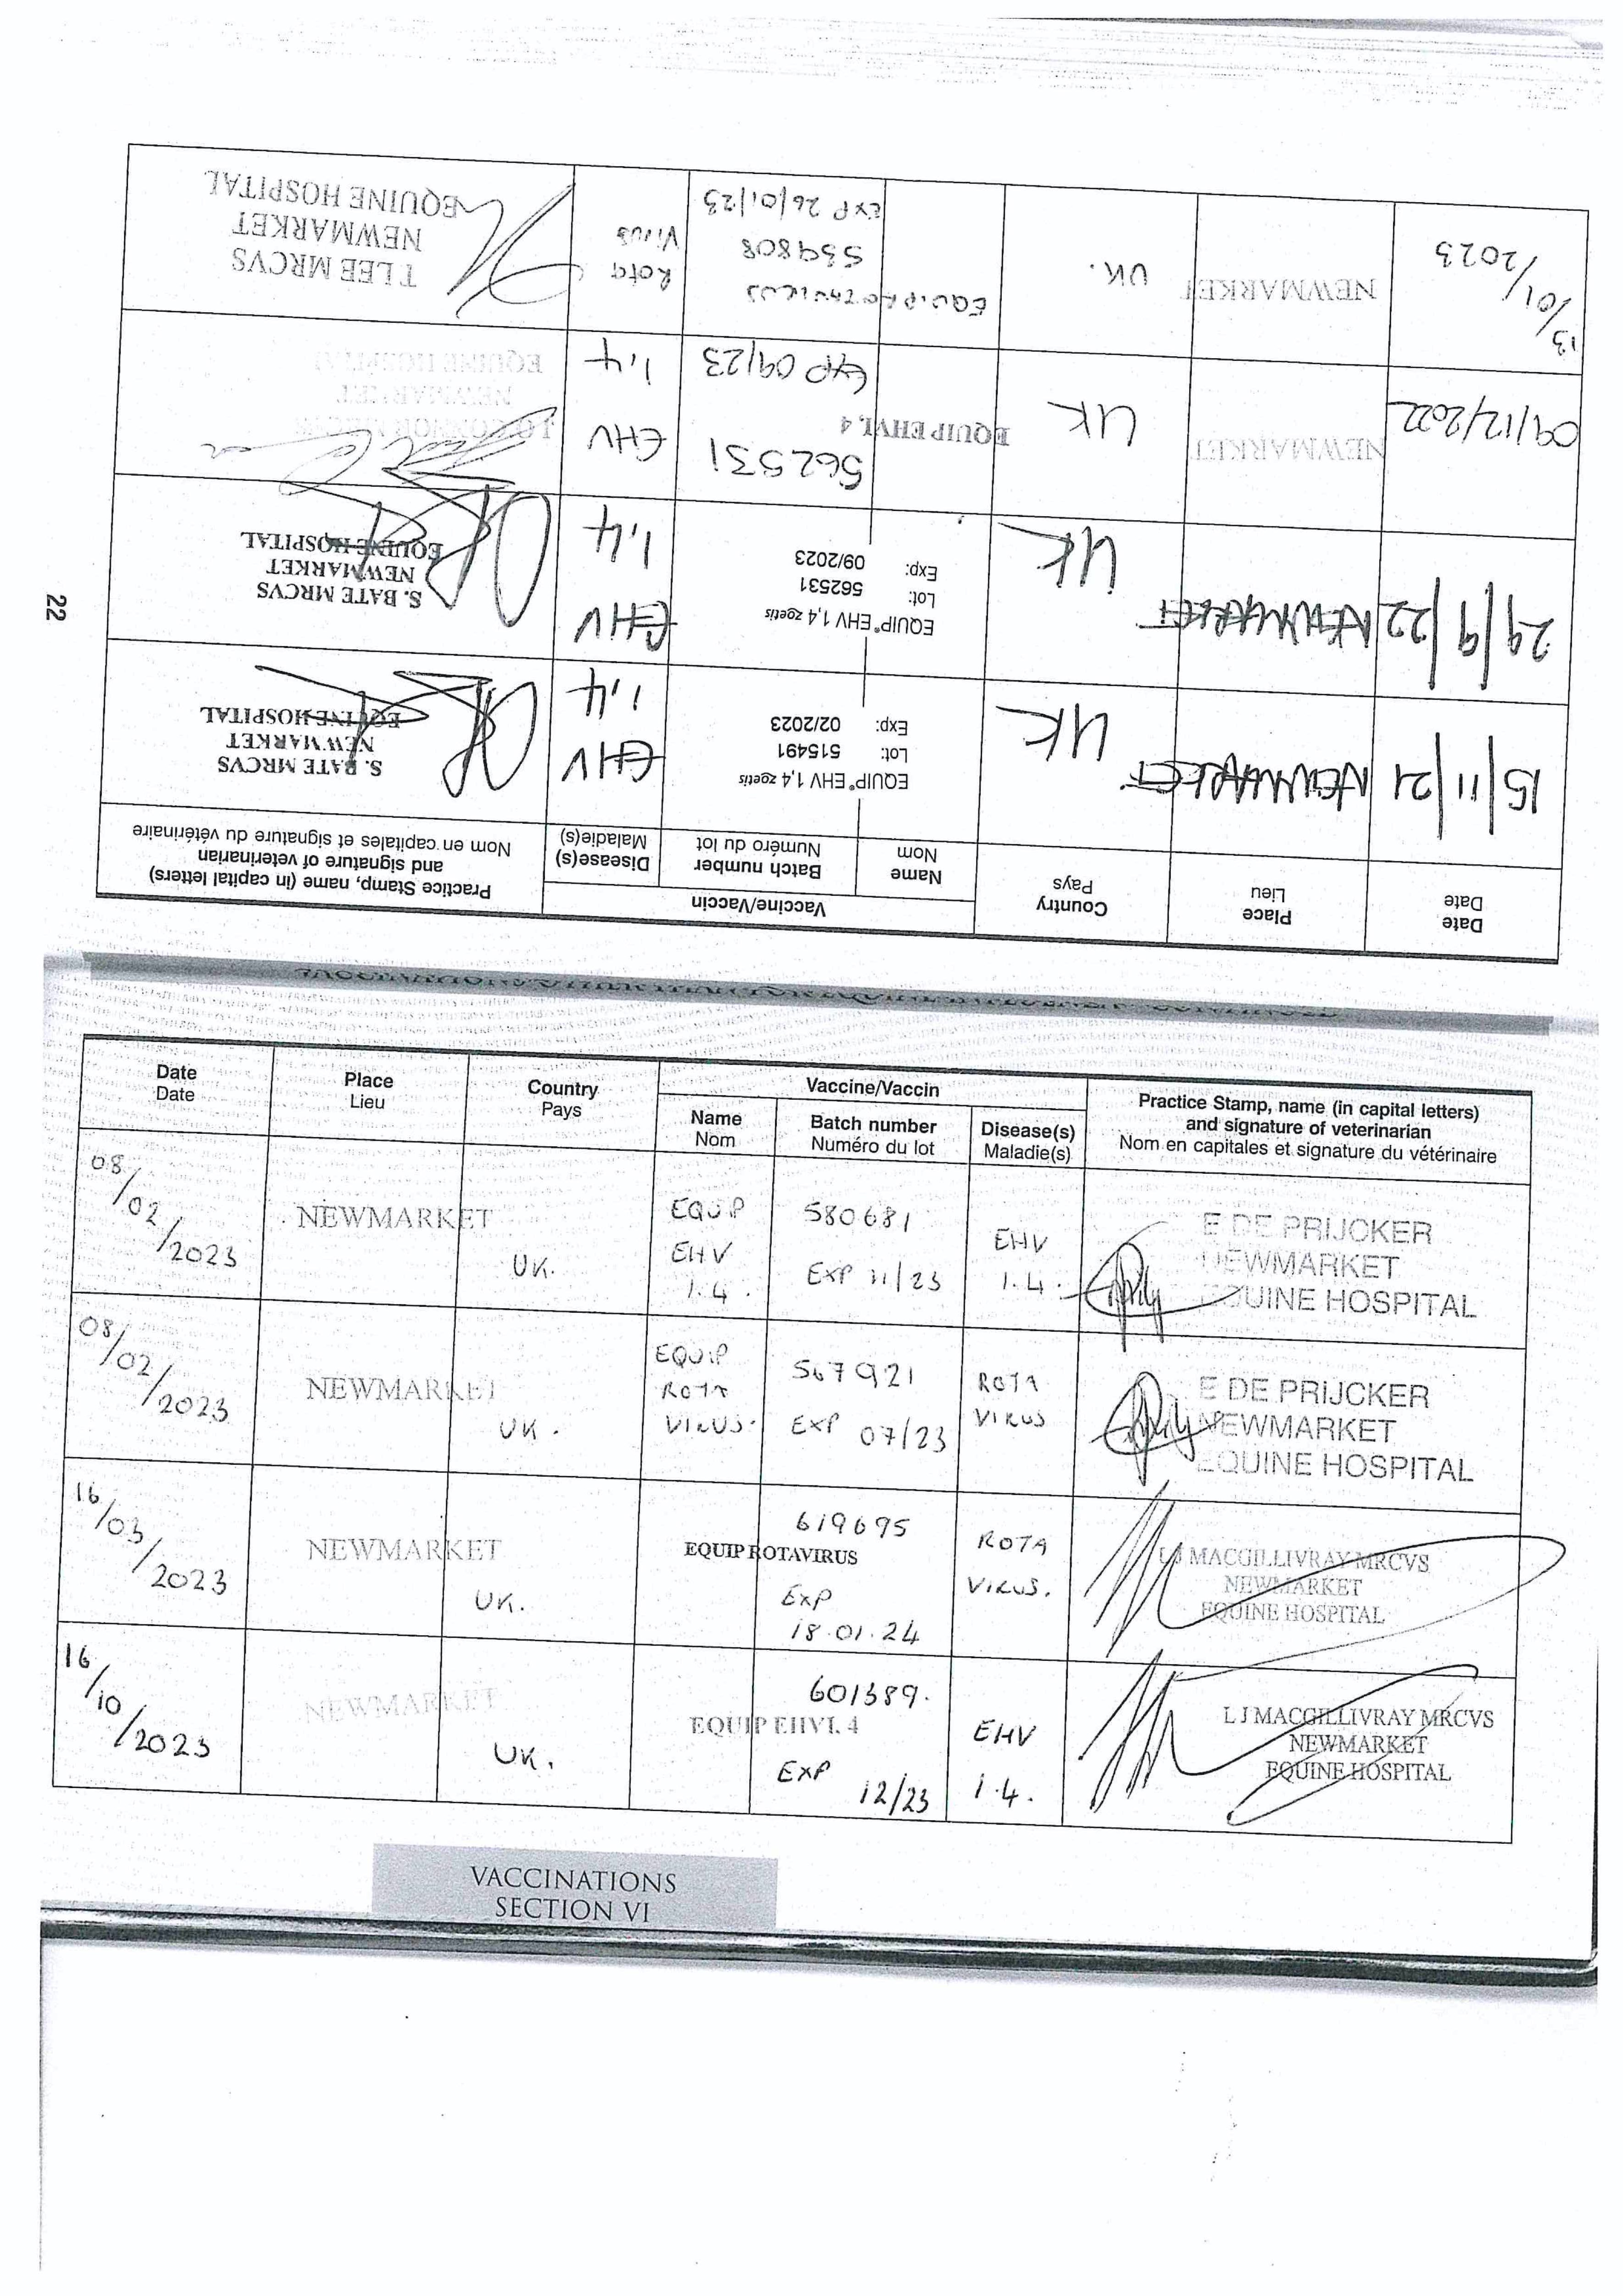 22
Date
Date
Place
Lieu
Country
Pays
Vaccine/Vaccin
Name
Nom
Batch number
Numéro du lot
Disease(s)
Maladie(s)
Practice Stamp, name (in capital letters)
and signature of veterinarian
Nom en capitales et signature du vétérinaire
15/11/21
NEWMARKET
UK
EQUIP® EHV 1,4 zoetis
Lot: 515491
Exp: 02/2023
EHV
1,4
S. BATE MRCVS
NEWMARKET
EQUINE HOSPITAL
29/9/22
NEWMARKET
UK
EQUIP® EHV 1,4 zoetis
Lot: 562531
Exp: 09/2023
EHV
1,4
S. BATE MRCVS
NEWMARKET
EQUINE HOSPITAL
09/12/2022
NEWMARKET
UK
EQUIP EHV1, 4
562531
EXP 09/23
EHV
1,4
NEWMARKET
EQUINE HOSPITAL
13/01/2023
NEWMARKET
UK.
EQUIP ROTAVIRUS
539808
EXP 26/01/23
Rota
Virus
T LEE MRCVS
NEWMARKET
EQUINE HOSPITAL
Date
Date
Place
Lieu
Country
Pays
Vaccine/Vaccin
Name
Nom
Batch number
Numéro du lot
Disease(s)
Maladie(s)
Practice Stamp, name (in capital letters)
and signature of veterinarian
Nom en capitales et signature du vétérinaire
08/02/2023
NEWMARKET
UK.
EQUIP
EHV
1.4.
580681
EXP 11/23
EHV
1.4.
E DE PRIJCKER
NEWMARKET
EQUINE HOSPITAL
08/02/2023
NEWMARKET
UK.
EQUIP
ROTA
VIRUS.
567921
EXP 07/23
ROTA
VIRUS
E DE PRIJCKER
NEWMARKET
EQUINE HOSPITAL
16/03/2023
NEWMARKET
UK.
EQUIP ROTAVIRUS
619695
EXP
18.01.24
ROTA
VIRUS.
L J MACGILLIVRAY MRCVS
NEWMARKET
EQUINE HOSPITAL
16/10/2023
NEWMARKET
UK.
EQUIP EHV1, 4
601389.
EXP 12/23
EHV
1.4.
L J MACGILLIVRAY MRCVS
NEWMARKET
EQUINE HOSPITAL
VACCINATIONS
SECTION VI